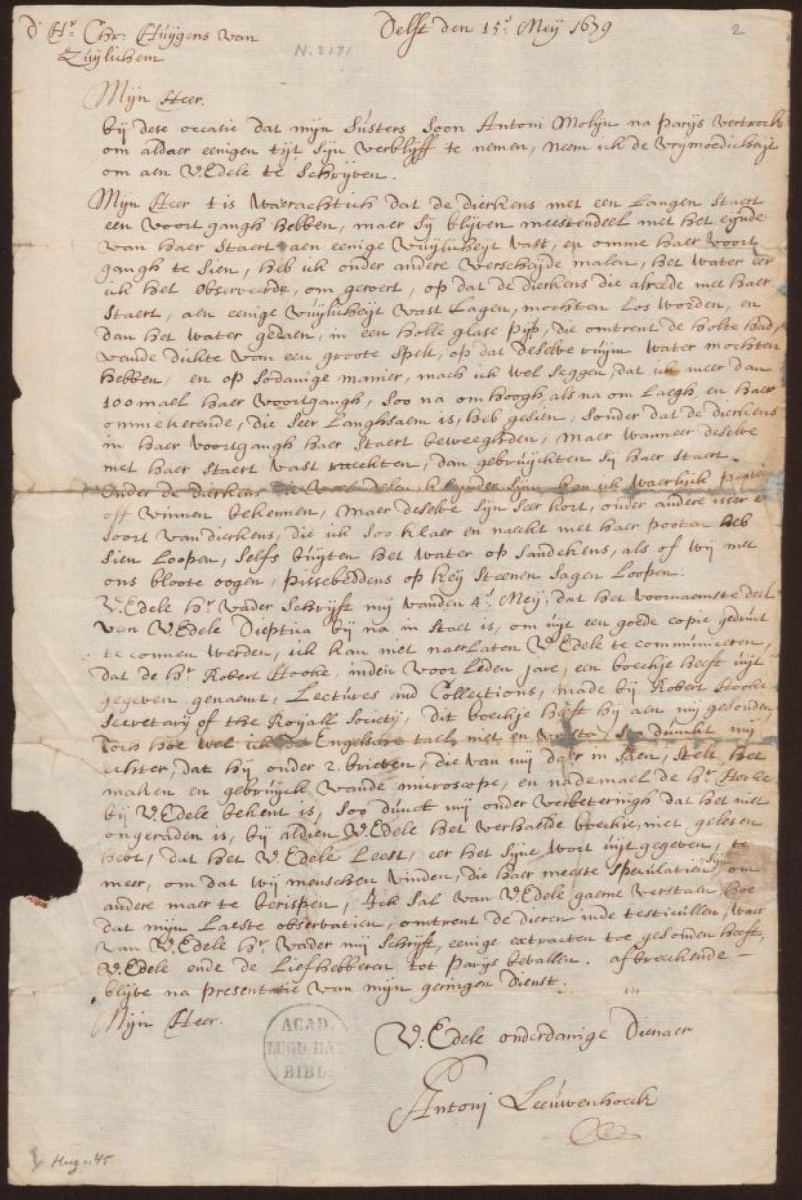 D'Hr Chr: Huijgens van
Zuijlichem
N. 2171
Delft den 15e Meij 1679
2
Mijn Heer.
bij dese occasie dat mijn Susters Soon Antoni Molijn na parijs vertreckt
om aldaer eenigen tijt Sijn verblijff te nemen, neem ick de vrijmoedicheijt
om aen V.Edele te Schrijven.
Mijn Heer t is waerachtich dat de dierkens met een Langen Staert
een voort gangh hebben, maer Sij blijven meestendeel met het eijnde
van haer Staert aen eenige vuijlicheijt vast, en omme haer voort
gangh te sien, heb ick onder andere verscheijde malen, het water eer
ick het observeerde, om geroert, op dat de dierkens die alreede met haer
Staert, aen eenige vuijlicheijt vast Lagen, mochten Los worden, en
dan het water gedaen, in een holle glase pijp, die omtrent de holte had,
vande dickte van een groote Spelt, op dat deselve ruijm water mochten
hebben, en op sodanige manier, mach ick wel seggen, dat ick meer dan
100 mael haer voortgangh, soo na om hoogh, als na om Laegh, en haer
ommekerende, die seer Langhsaem is, heb gesien, sonder dat de dierkens
in haer voortgangh haer Staert beweeghden, maer wanneer deselve
met haer Staert vast raeckten, dan gebruijckten sij haer Staert.
Onder de dierkens die kan ick waerlijck
off vinnen bekennen, maer deselve sijn seer kort, onder andere isser
soort van dierkens, die ick soo klaer en naeckt met haer pooten heb
sien Loopen, selfs buijten het water op sandekens, als of wij met
ons bloote oogen, pissebeddens op keij Steenen sagen Loopen.
V.Edele hr vader schrijft mij vanden 4e Meij, dat het voornaemste deel
van V.Edele Dioptica bij na in Staet is, om uijt een goede copie gedruct
te connen werden, ick kan niet naerlaten V.Edele te communiceren,
dat de hr Robert Hooke, inden voor Leden jare, een boeckje heeft uijt
gegeven genaemt, Lectures and Collections, made bij Robert Hooke
Secretarij of the Royall Societij, dit boeckje heeft hij aen mij gesonden
Toch hoe wel ick de Engelsche tael, niet en versta, Soo dunckt mij
echter, dat hij onder 2. brieven, die van mij daer in Sien, Stelt het
maken en gebruijck vande microscope, en nademael de hr Hooke
bij V.Edele bekent is, soo dunct mij onder verbeteringh dat het niet
ongeraden is, bij aldien V.Edele het verhaelde boeckje, niet gelesen
hebt, dat het V.Edele Leest, eer het sijne wort uijt gegeven, te
meer, om dat wij menschen vinden, die haer meeste speculatien sijn, om
andere maer te berispen, Ick sal van V.Edele gaerne verstaen hoe
dat mijn Laeste observatien, omtrent de dieren inde testicullen, waer
van V.Edele hr vader mij schrijft, eenige extracten toe gesonden heeft,
V.Edele ende de Liefhebberen tot Parijs bevallen. afbreeckende
blijve na presentatie van mijn geringen Dienst.
Mijn Heer.
V.Edele onderdanige Dienaer
Antonij Leeuwenhoeck
ACAD.
LUGD. BAT
BIBL.
Hug. 45